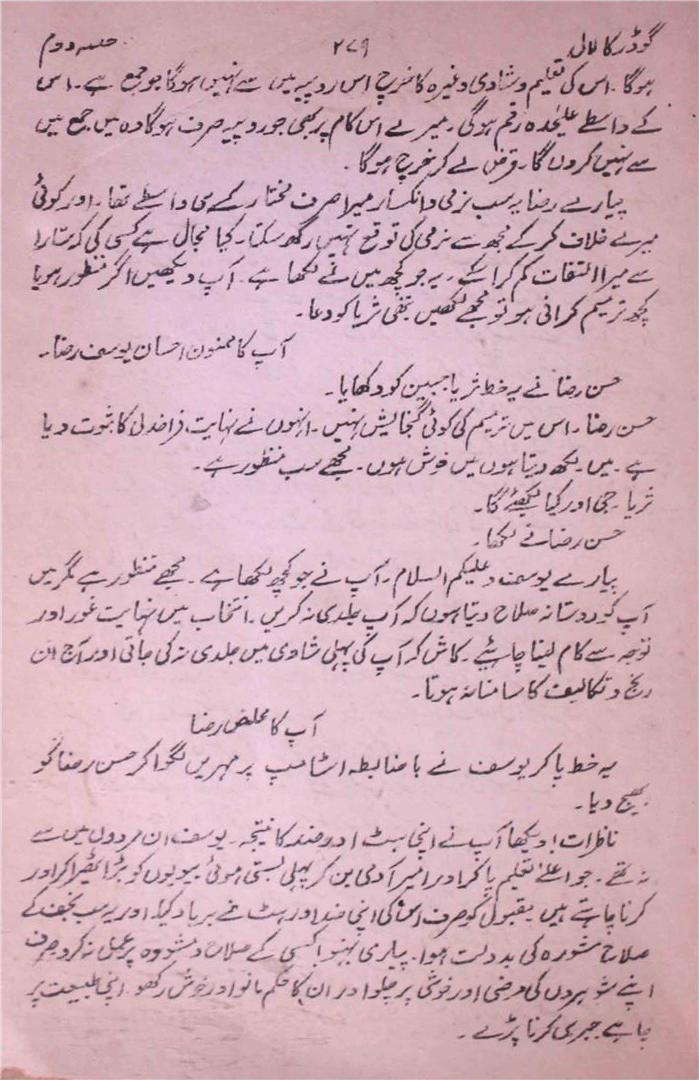 گودڑ کا لال ۲۷۹ حصہ دوم
ہوگا۔ اس کی تعلیم و شادی وغیرہ کا خرچ اس روپیہ میں سے نہیں ہوگا جو جمع ہے۔ اس
کے واسطے علیحدہ رقم ہوگی۔ میرے اس کام پر بھی جو روپیہ صرف ہوگا وہ میں جمع میں
سے نہیں کروں گا۔ قرض لے کر خرچ ہوگا۔
پیارے رضا یہ سب نرمی و انکسار میرا صرف مختار کے ہی واسطے تھا۔ اور کوئی
میرے خلاف کر کے مجھ سے نرمی کی توقع نہیں رکھ سکتا۔ کیا مجال ہے کسی کی کہ ستارا
سے میرا التفات کم کرا سکے۔ یہ جو کچھ میں نے لکھا ہے۔ آپ دیکھیں اگر منظور ہو یا
کچھ ترمیم کرانی ہو تو مجھے لکھیں ننھی ثریا کو دعا۔
آپ کا ممنون احسان یوسف رضا۔
حسن رضا نے یہ خط ثریا جبین کو دکھایا۔
حسن رضا۔ اس میں ترمیم کی کوئی گنجائیش نہیں۔ انہوں نے نہایت فراخدلی کا ثبوت دیا
ہے۔ میں لکھ دیتا ہوں میں خوش ہوں۔ مجھے سب منظور ہے۔
ثریا۔ جی اور کیا لکھئے گا۔
حسن رضا نے لکھا۔
پیارے یوسف وعلیکم السلام۔ آپ نے جو کچھ لکھا ہے۔ مجھے منظور ہے مگر میں
آپ کو دوستانہ صلاح دیتا ہوں کہ آپ جلدی نہ کریں۔ انتخاب میں نہایت غور اور
توجہ سے کام لینا چاہئیے۔ کاش کہ آپ کی پہلی شادی میں جلدی نہ کی جاتی اور آج ان
رنج و تکالیف کا سامنا نہ ہوتا۔
آپ کا مخلص رضا
یہ خط پا کر یوسف نے باضابطہ اسٹامپ پر مہریں لگوا کر حسن رضا کو
بھیج دیا۔
ناظرات! دیکھا آپ نے اپنی ہٹ اور ضد کا نتیجہ۔ یوسف ان مردوں میں سے
نہ تھے۔ جو اعلےٰ تعلیم پا کر اور امیر آدمی بن کر پہلی بستی ہوئی بیویوں کو بڑا ٹھہرا کر اور
کرنا چاہتے ہیں مقبول کو صرف اس کی اپنی ضد اور ہٹ نے برباد کیا۔ اور یہ سب نجف کے
صلاح مشورہ کی بدولت ہوا۔ پیاری بہنو! کسی کے صلاح و مشورہ پر عمل نہ کرو صرف
اپنے شوہروں کی مرضی اور خوشی پر چلو اور ان کا حکم مانو اور خوش رکھو۔ اپنی طبیعت پر
چاہے جبر ہی کرنا پڑے۔